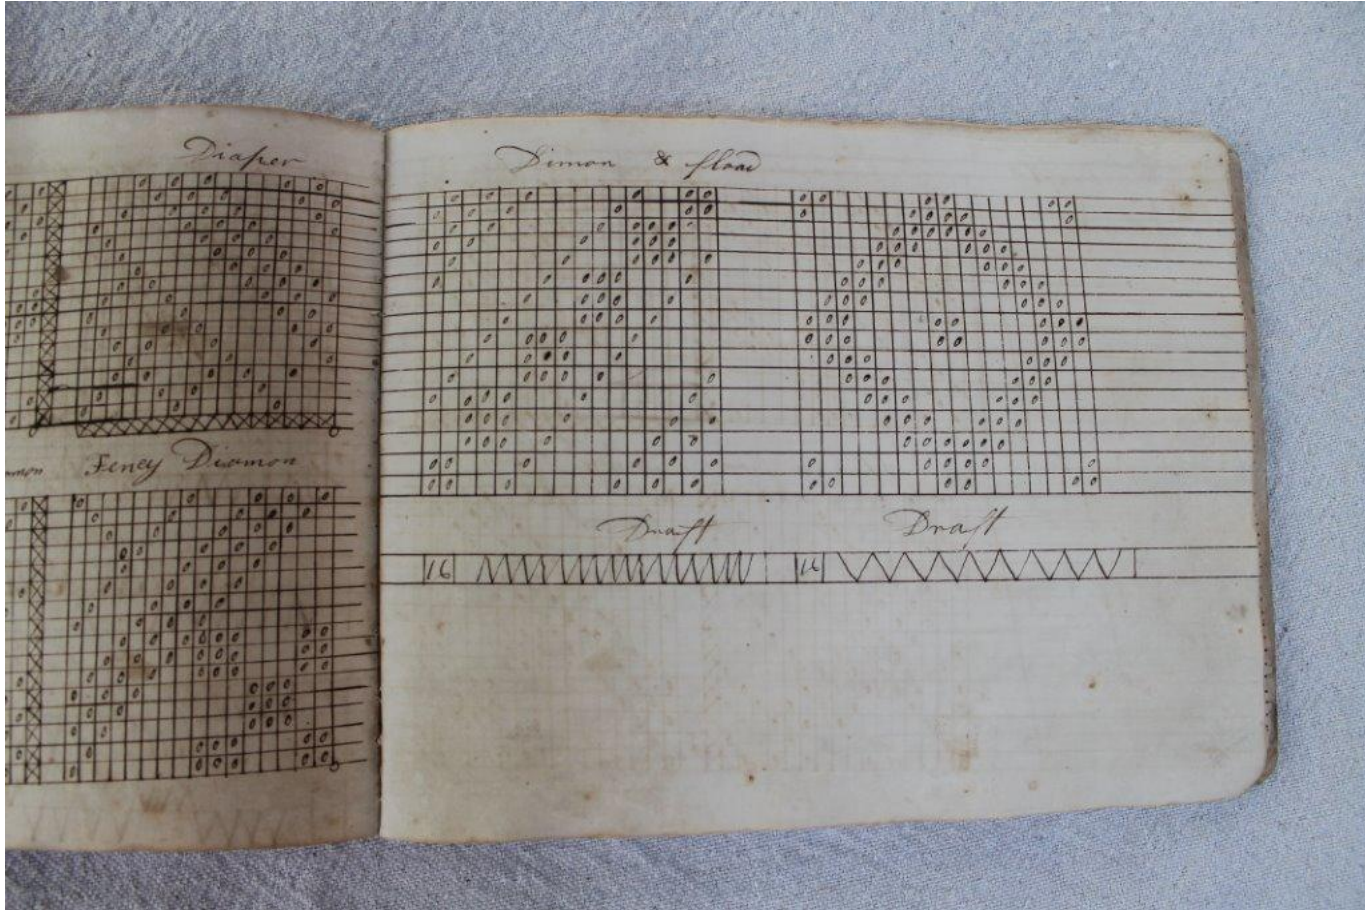 Diaper
Feney Diamon
Dimon &
Draft Draft
16 16